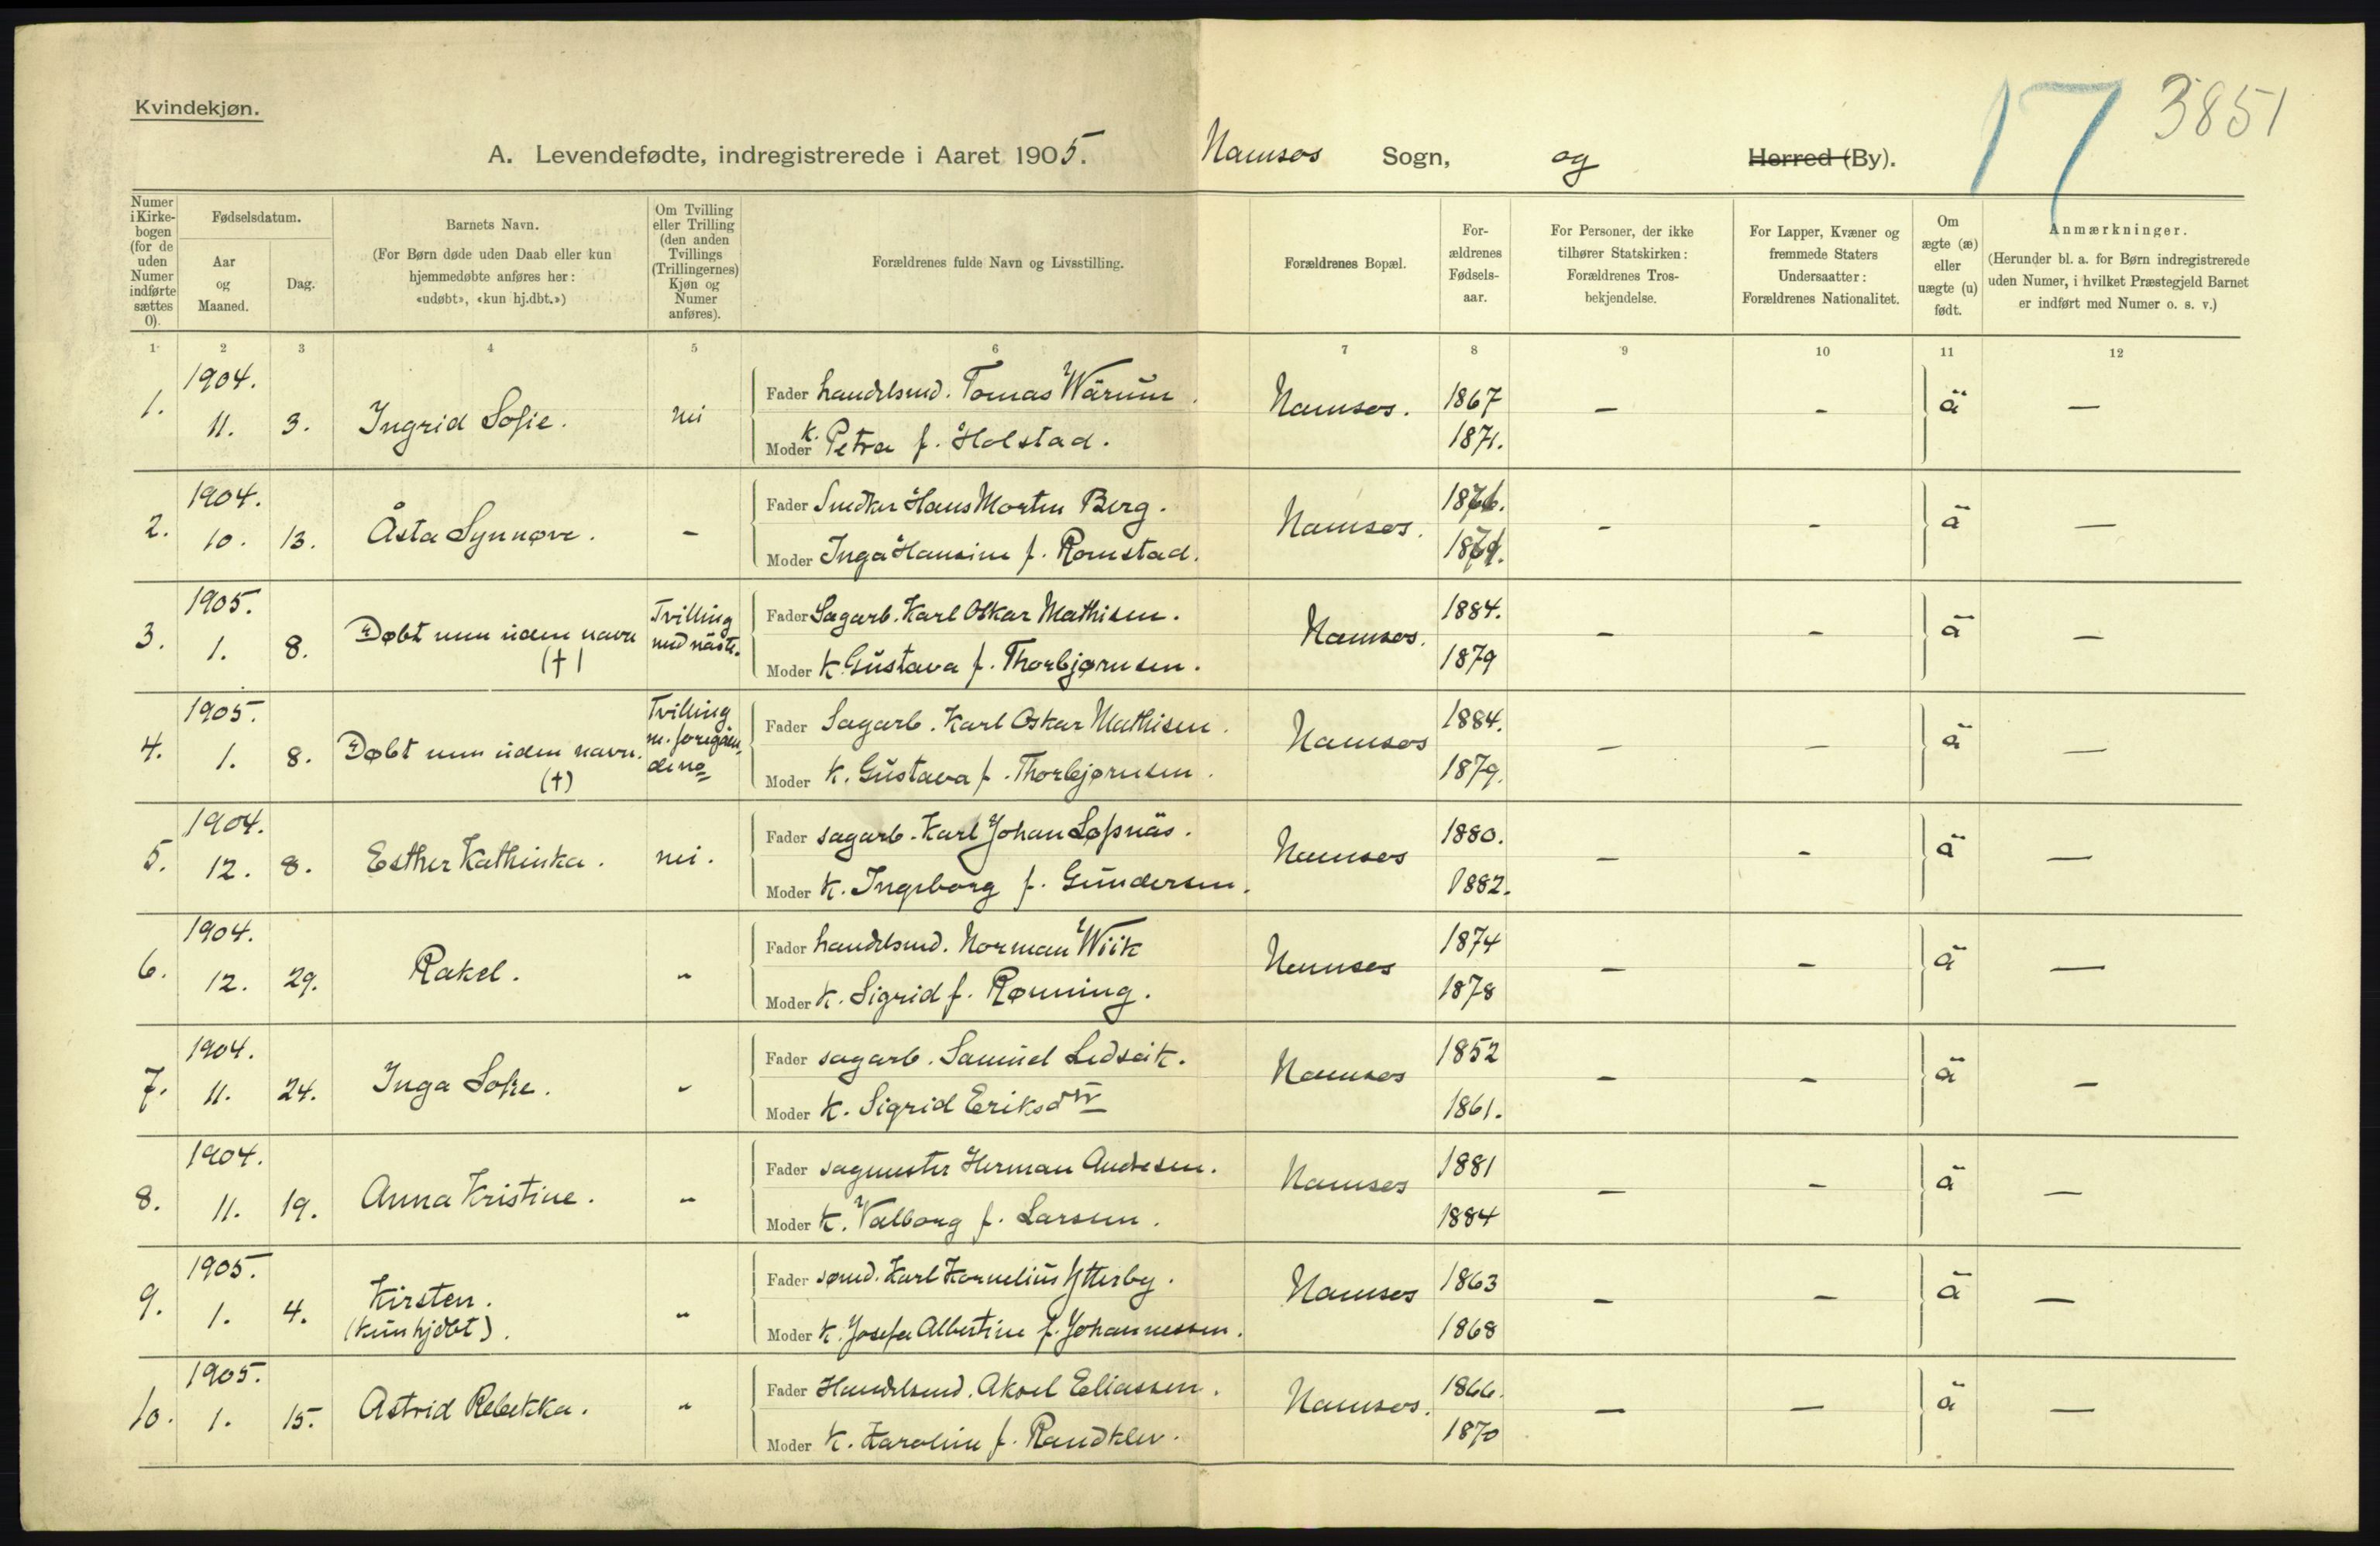 Kvindekjøn.
17 3851
A. Levendefødte, indregistrerede i Aaret 1905. Namsos Sogn, og Herred (By).
Numer i Kirkebogen (for de uden Numer indførte sættes 0).
Fødselsdatum.
Aar og Maaned.
Dag.
Barnets Navn.
(For Børn døde uden Daab eller kun hjemmedøbte anføres her: «udøbt», «kun hj.dbt.»)
Om Tvilling eller Trilling (den anden Tvillings (Trillingernes) Kjøn og Numer anføres).
Forældrenes fulde Navn og Livsstilling.
Forældrenes Bopæl.
Forældrenes Fødselsaar.
For Personer, der ikke tilhører Statskirken: Forældrenes Trosbekjendelse.
For Lapper, Kvæner og fremmede Staters Undersaatter: Forældrenes Nationalitet.
Om ægte (æ) eller uægte (u) født.
Anmærkninger.
(Herunder bl. a. for Børn indregistrerede uden Numer, i hvilket Præstegjeld Barnet er indført med Numer o. s. v.)
1 2 3 4 5 6 7 8 9 10 11 12
1. 1904. 11. 3. Ingrid Sofie. nei
Fader handelsmd. Tomas Wärum. Namsos. 1867 – – ä –
Moder K. Petra f. Holstad. 1871.
2. 1904. 10. 13. Åsta Synnøve. –
Fader Snedker Hans Morten Berg. Namsos. – – ä –
Moder Inga Hansine f. Romstad.
3. 1905. 1. 8. Døbt men uden navn (†) Tvilling med näste.
Fader Sagarb. Karl Oskar Mathisen. Namsos. 1884. – – ä –
Moder K Gustava f. Thorbjørnsen. 1879
4. 1905. 1. 8. Døbt men uden navn. (†) Tvilling m. foregåen, de no
Fader Sagarb. Karl Oskar Mathisen. Namsos 1884. – – ä –
Moder K. Gustava f. Thorbjørnsen. 1879.
5. 1904. 12. 8. Esther Kathinka. nei.
Fader sagarb. Karl Johan Løfsnäs. Namsos 1880. – – ä –
Moder K. Ingeborg f. Gundersen. 1882.
6. 1904. 12. 29. Rakel. –
Fader handelsmd. Norman Wiik Namsos 1874 – – ä –
Moder K. Sigrid f. Rønning. 1878
7. 1904. 11. 24. Inga Sofie. –
Fader sagarb. Samuel Namsos 1852 – – ä –
Moder K. Sigrid Eriksdtr 1861.
8. 1904. 11. 19. Anna Kristine. –
Fader sagmester Herman Andresen. Namsos 1881 – – ä –
Moder K. Valborg f. Larsen. 1884
9. 1905. 1. 4. Kirsten. (kun hjdbt). –
Fader sømd. Karl Kornelius Ytterby. Namsos 1863 – – ä –
Moder K. Josefa Albertine f. Johannessen. 1868
10. 1905. 1. 15. Astrid Rebekka. –
Fader Handelsmd. Aksel Eliassen. Namsos. 1866. – – ä –
Moder K. Karoline f. Randklev. 1870